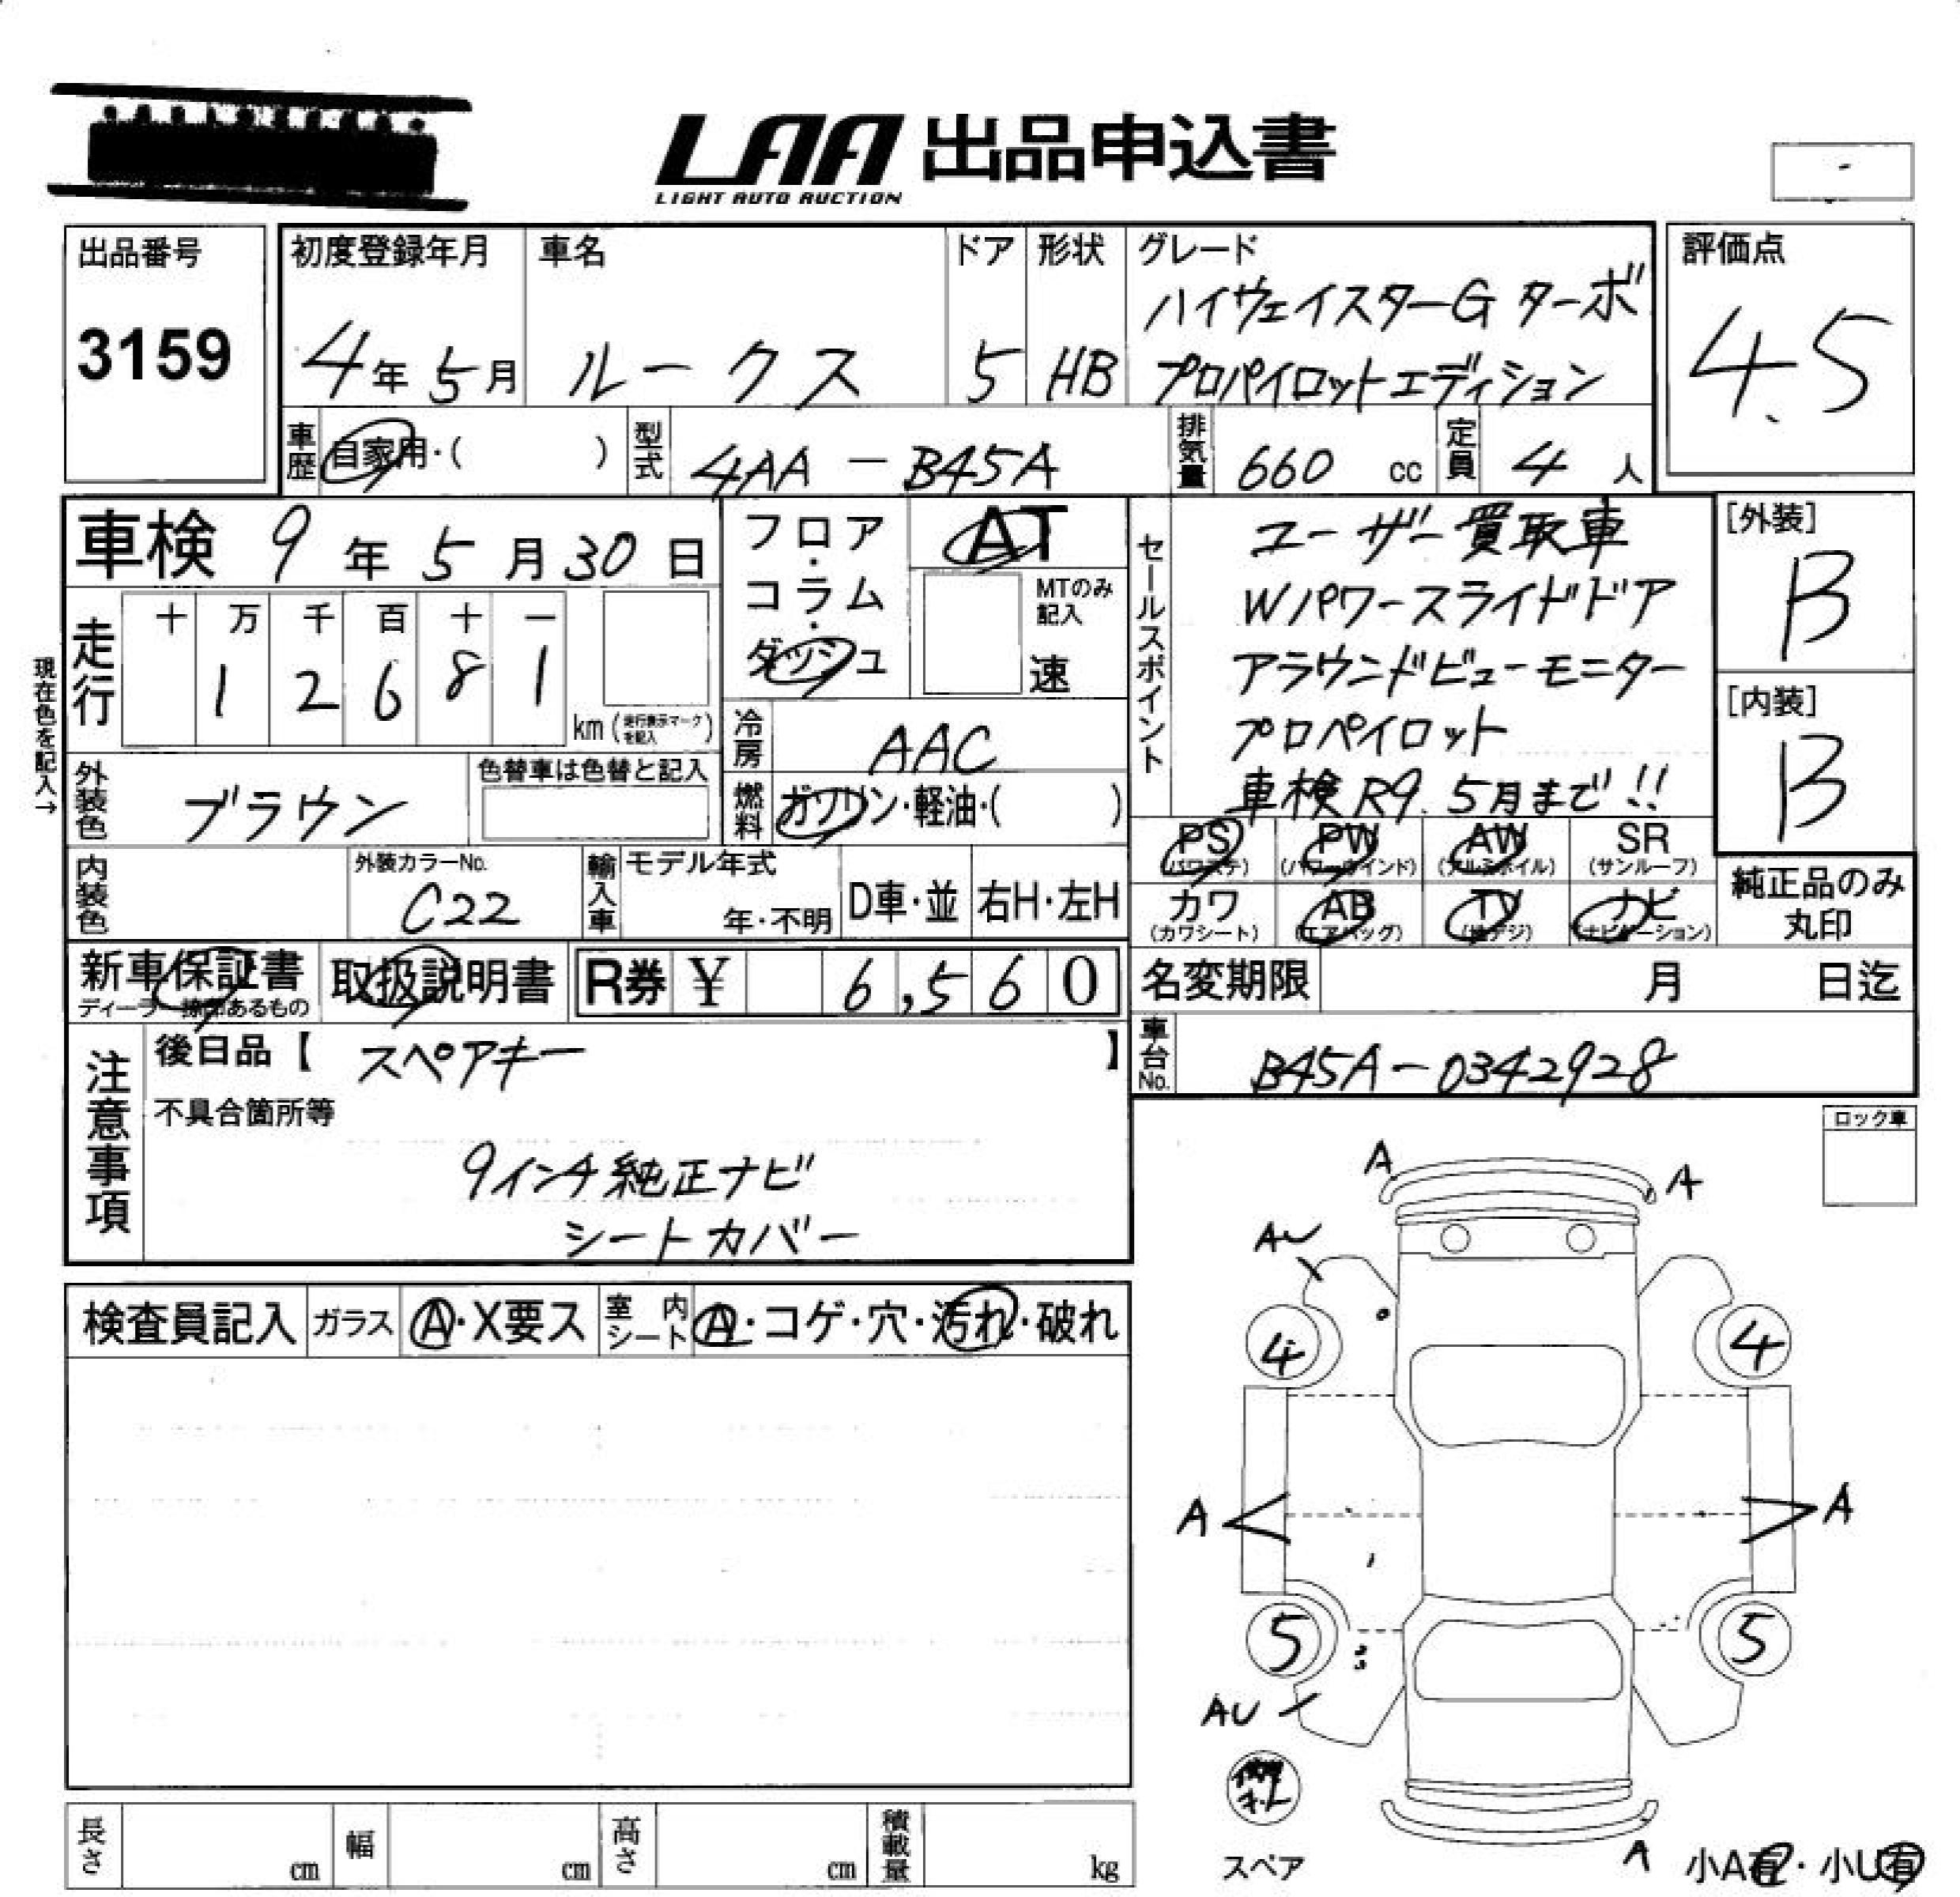 LAA 出品申込書
LIGHT AUTO AUCTION
-
出品番号
3159
初度登録年月
4年5月
車名
ルークス
ドア
5
形状
HB
グレード
ハイウェイスターG ターボ
プロパイロットエディション
評価点
4.5
車歴
自家用・( )
型式
4AA-B45A
排気量
660 cc
定員
4 人
車検 9年5月30日
フロア・コラム・ダッシュ
AT
MTのみ記入
速
セールスポイント
ユーザー買取車
Wパワースライドドア
アラウンドビューモニター
プロペイロット
車検R9.5月まで!!
[外装]
B
[内装]
B
現在色を記入→
走行
十 万 千 百 十 一
1 2 6 8 1
km (走行表示マークを記入)
冷房
AAC
外装色
ブラウン
色替車は色替と記入
燃料
ガソリン・軽油・( )
PS (パワステ)
PW (パワーウインド)
AW (アルミホイル)
SR (サンルーフ)
カワ (カワシート)
AB (エアバッグ)
TV (地デジ)
ナビ (ナビゲーション)
純正品のみ丸印
内装色
外装カラーNo.
C22
輸入車
モデル年式
年・不明
D車・並
右H・左H
新車保証書
ディーラー捺印あるもの
取扱説明書
R券 ¥ 6,560
名変期限 月 日迄
車台No.
B45A-0342928
注意事項
後日品【 スペアキー 】
不具合箇所等
9インチ純正ナビ
シートカバー
ロック車
検査員記入
ガラス
A・X要ス
室内シート
A・コゲ・穴・汚れ・破れ
A
A
AU
4
4
A
A
5
5
AU
スペア
A
小A有・小U有
長さ cm
幅 cm
高さ cm
積載量 kg